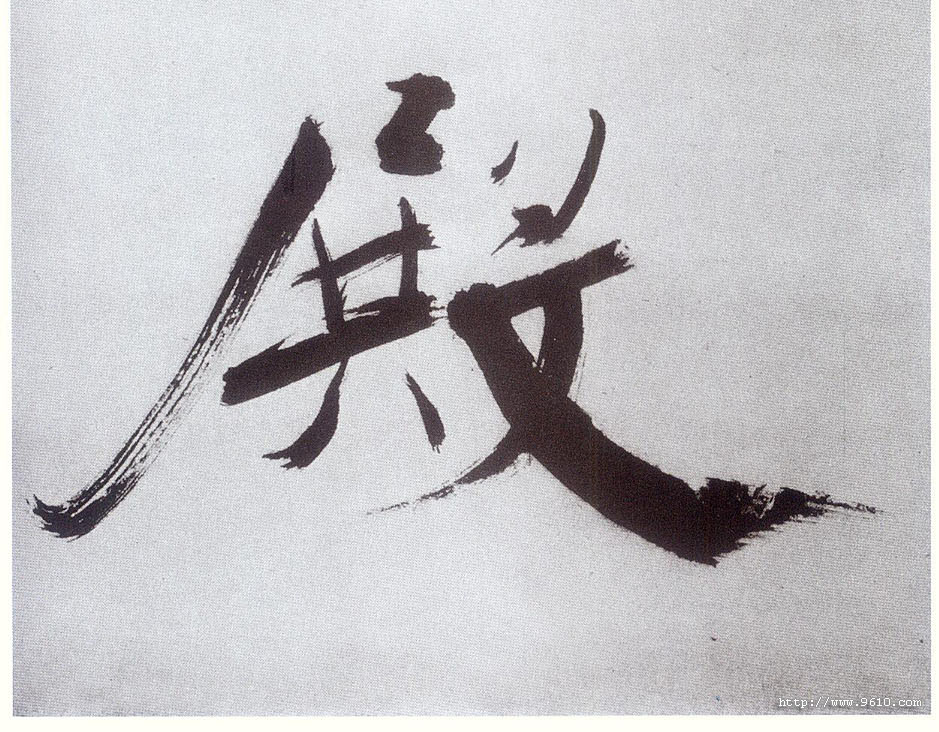 殿
http://www.9610.com